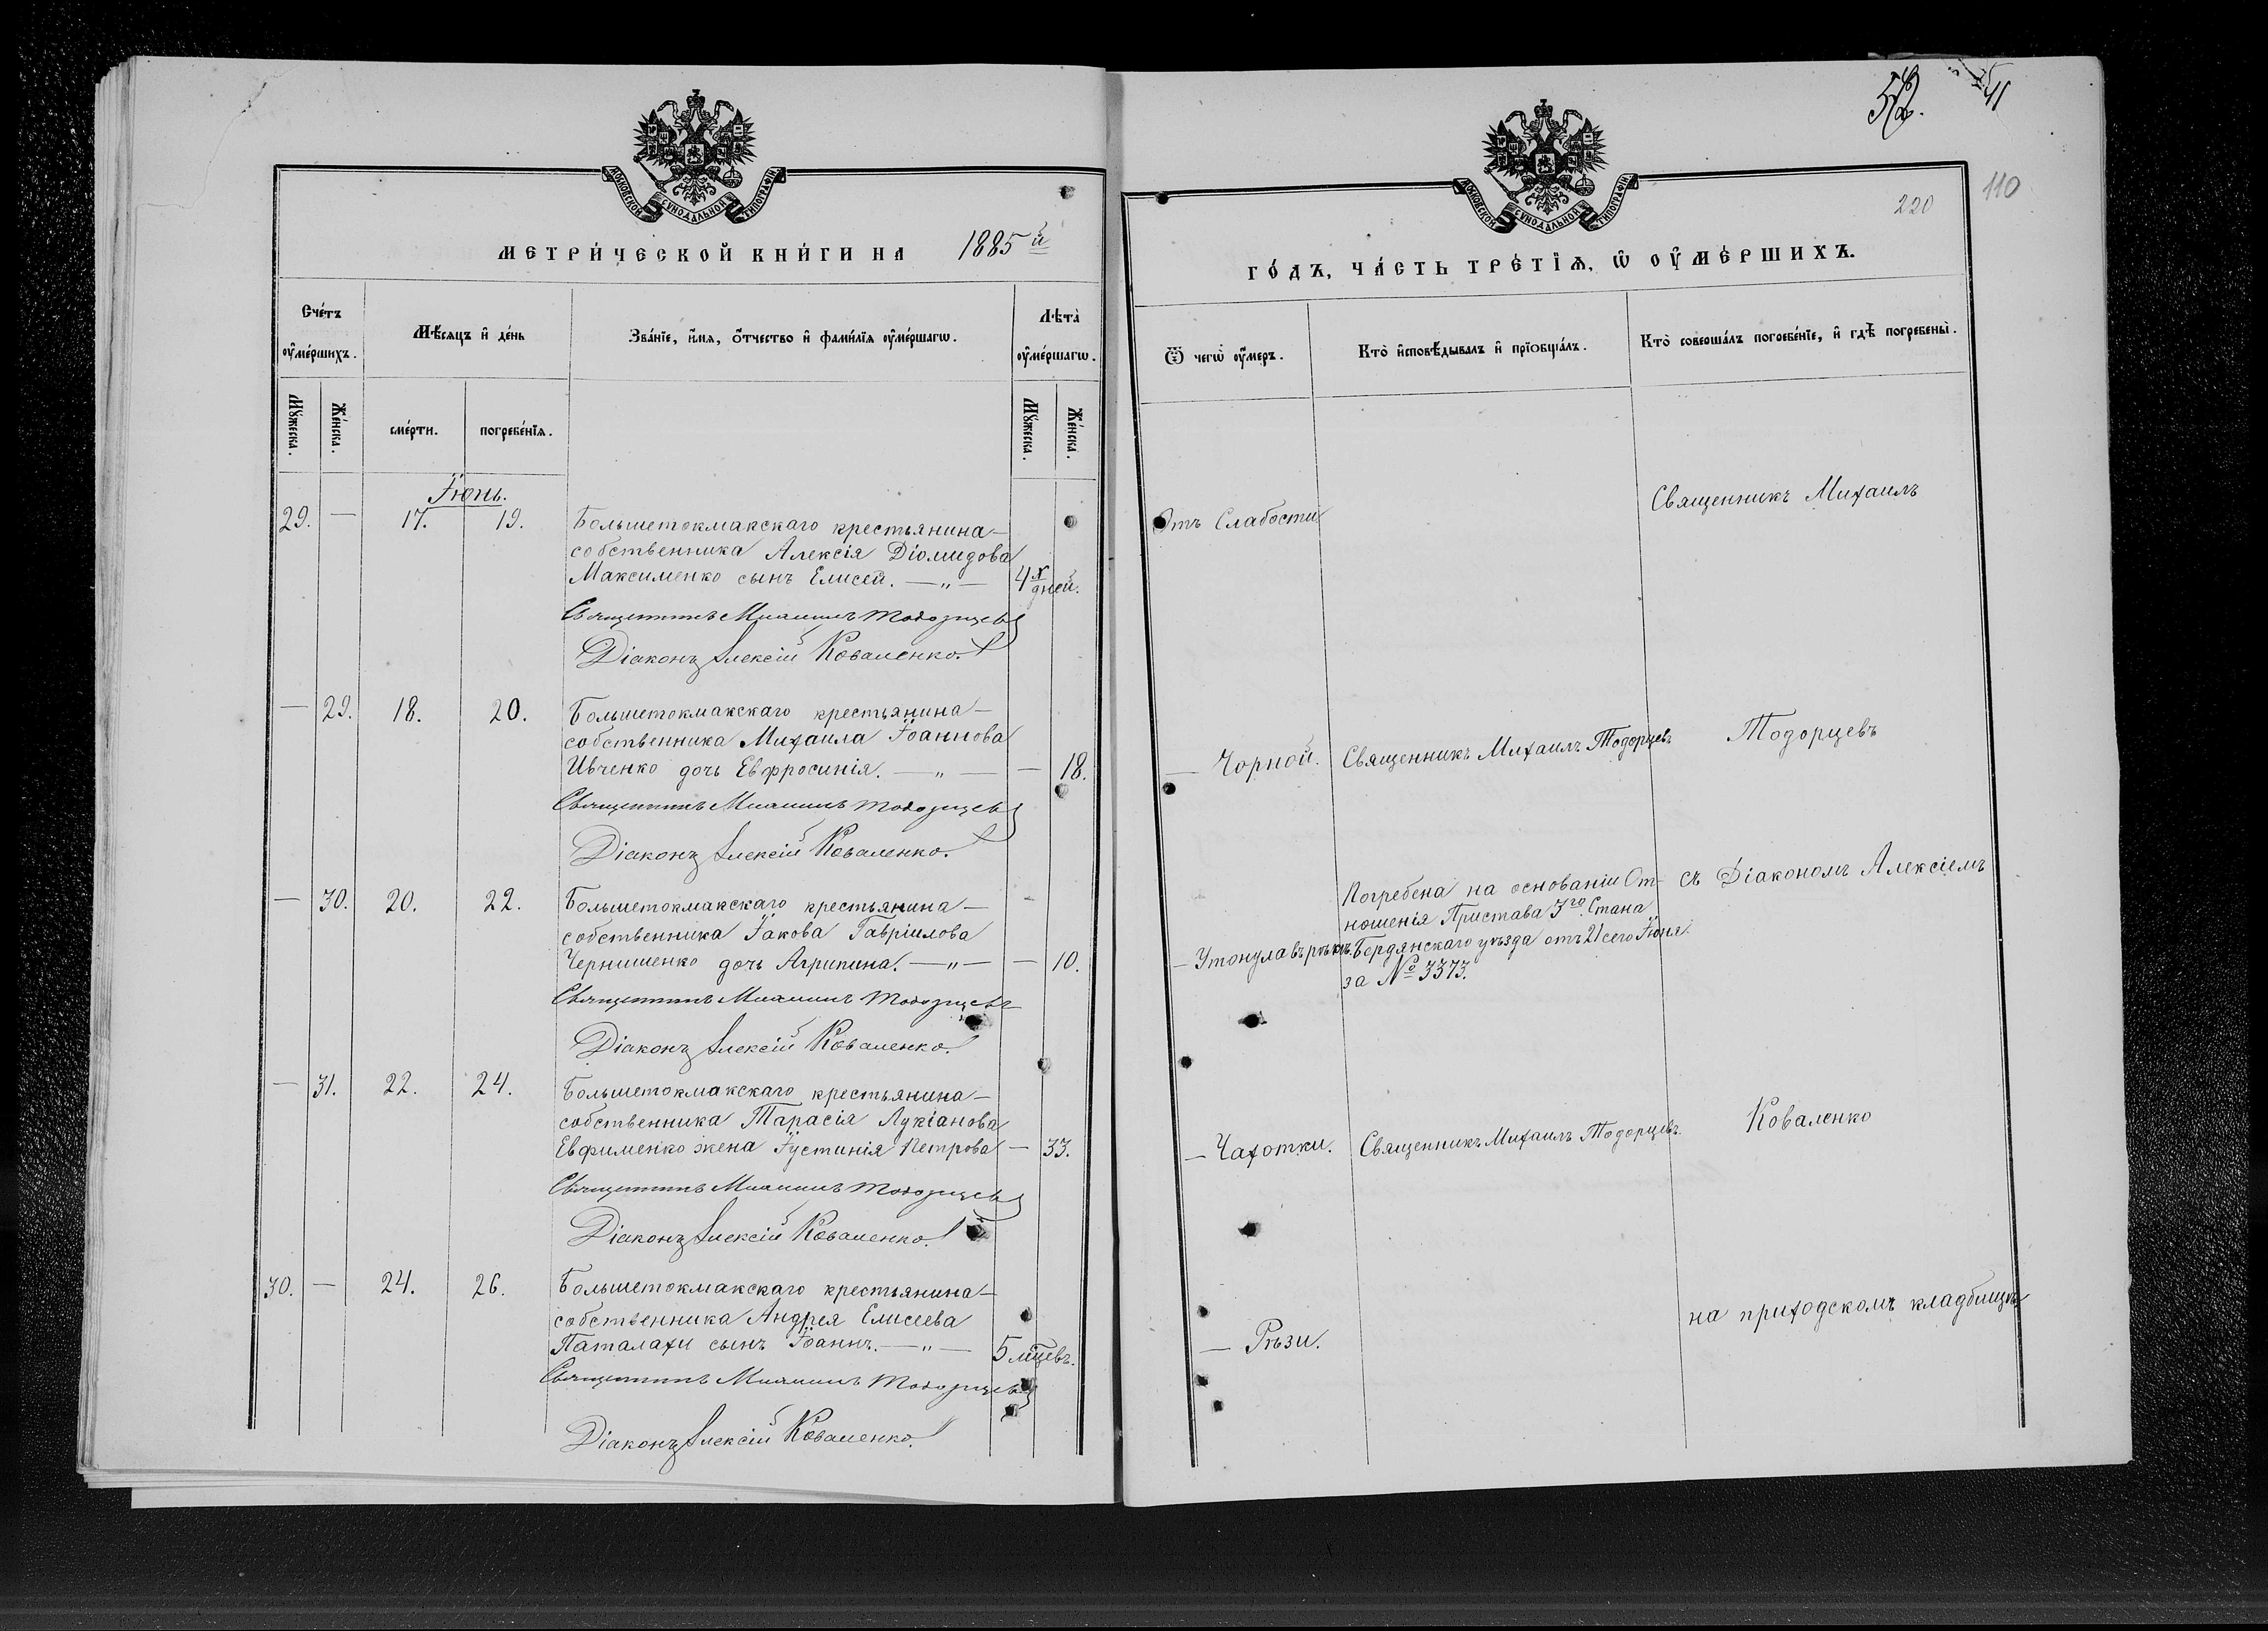 МОСКОВСКОЙ СѴНОДАЛЬНОЙ ТИПОГРАФІИ
МЕТРИ́ЧЕСКОЙ КНИ́ГИ НА 1885й
Сче́тъ оу҆ме́ршихъ.
Мѣ́сяцъ и҆ де́нь
Зва́нїе, и҆́мя, ѻ҆́тчество и҆ фами́лїя оу҆ме́ршагѡ.
Лѣта̀ оу҆ме́ршагѡ.
Мꙋ́жеска.
Же́нска.
сме́рти.
погребе́нїя.
Мꙋ́жеска.
Же́нска.
Іюнь.
29. — 17. 19. Большетокмакскаго крестьянина-
собственника Алексія Діомидова
Максименко сынъ Елисей. —„— 4х дней.
Священникъ Михаилъ Тодорцевъ
Діаконъ Алексій Коваленко.
— 29. 18. 20. Большетокмакскаго крестьянина-
собственника Михаила Іоаннова
Ивченко дочь Евфросинія. —„— — 18.
Священникъ Михаилъ Тодорцевъ
Діаконъ Алексій Коваленко.
— 30. 20. 22. Большетокмакскаго крестьянина-
собственника Іакова Гавріилова
Чернишенко дочь Агрипина. —„— — 10.
Священникъ Михаилъ Тодорцевъ
Діаконъ Алексій Коваленко.
— 31. 22. 24. Большетокмакскаго крестьянина-
собственника Тарасія Лукіанова
Евфименко жена Іустинія Петрова — 33.
Священникъ Михаилъ Тодорцевъ
Діаконъ Алексій Коваленко.
30. — 24. 26. Большетокмакскаго крестьянина-
собственника Андрея Елисеева
Паталахи сынъ Іоаннъ. —„— 5 мцевъ.
Священникъ Михаилъ Тодорцевъ
Діаконъ Алексій Коваленко.
41
110
220
МОСКОВСКОЙ СѴНОДАЛЬНОЙ ТИПОГРАФІИ
ГО́ДЪ, ЧА́СТЬ ТРЕ́ТЇѦ, Ѡ҆ ОУ҆МЕ́РШИХЪ.
Ѿ чегѡ̀ оу҆́меръ.
Кто̀ и҆сповѣ́дывалъ и҆ прїобща́лъ.
Кто̀ соверша́лъ погребе́нїе, и҆ гдѣ̀ погребены̀.
Отъ Слабости
Священникъ Михаилъ
— Чорной. Священникъ Михаилъ Тодорцевъ
Тодорцевъ
Погребена на основаніи От-
ношенія Пристава 3го Стана
— Утонула въ рѣкѣ. Бердянскаго уѣзда отъ 21 сего Іюня
за № 3373.
съ Діакономъ Алексіемъ
— Чахотки. Священникъ Михаилъ Тодорцевъ.
Коваленко
— Рѣзи.
на приходскомъ кладбищѣ